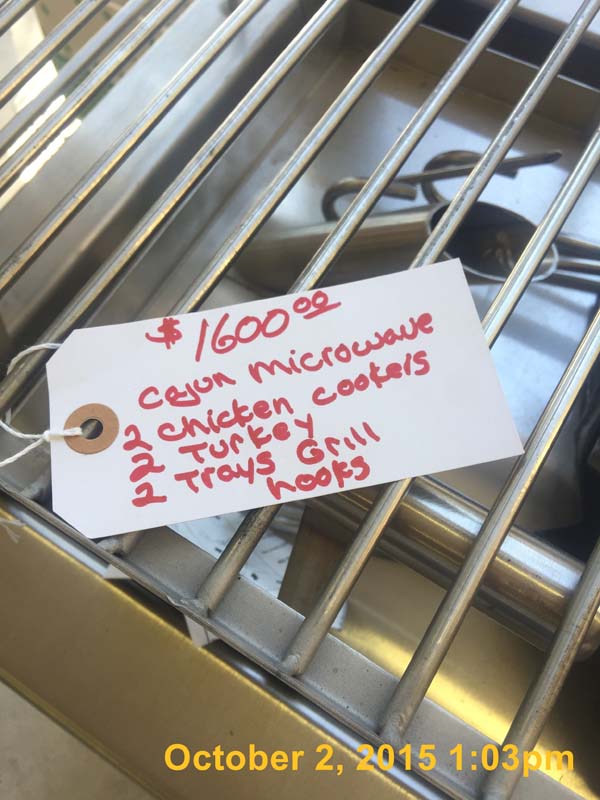 $ 1600⁰⁰
Cejun microwave
2 chicken cookers
2 Turkey
2 Trays Grill
hooks
October 2, 2015 1:03pm